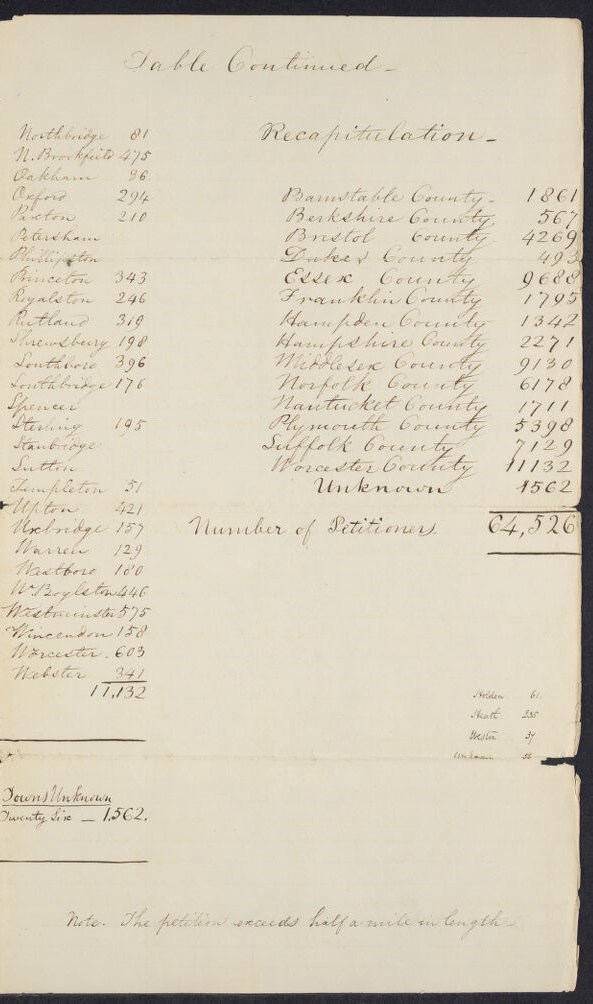 Table Continued -
Northbridge 81
N. Brookfield 475
Oakham 86
Oxford 294
Paxton 210
Petersham
Phillipston
Princeton 343
Royalston 246
Rutland 319
Shrewsbury 198
Southboro 396
Southbridge 176
Spencer
Sterling 195
Stanbridge
Sutton
Templeton 51
Upton 421
Uxbridge 157
Warren 129
Westboro 180
W. Boylston 446
Westminster 575
Wincendon 158
Worcester 603
Webster 341
11,132
Towns Unknown
Twenty Six - 1,562.
Recapitulation -
Barnstable County - 1861
Berkshire County 567
Bristol County 4269
Dukes County 493
Essex County 9688
Franklin County 1795
Hampden County 1342
Hampshire County 2271
Middlesex County 9130
Norfolk County 6178
Nantucket County 1711
Plymouth County 5398
Suffolk County 7129
Worcester County 11132
Unknown 1562
Number of Petitioners. 64,526
Holden 61
Heath 235
Weston 37
Note. The petition exceeds half a mile in length -